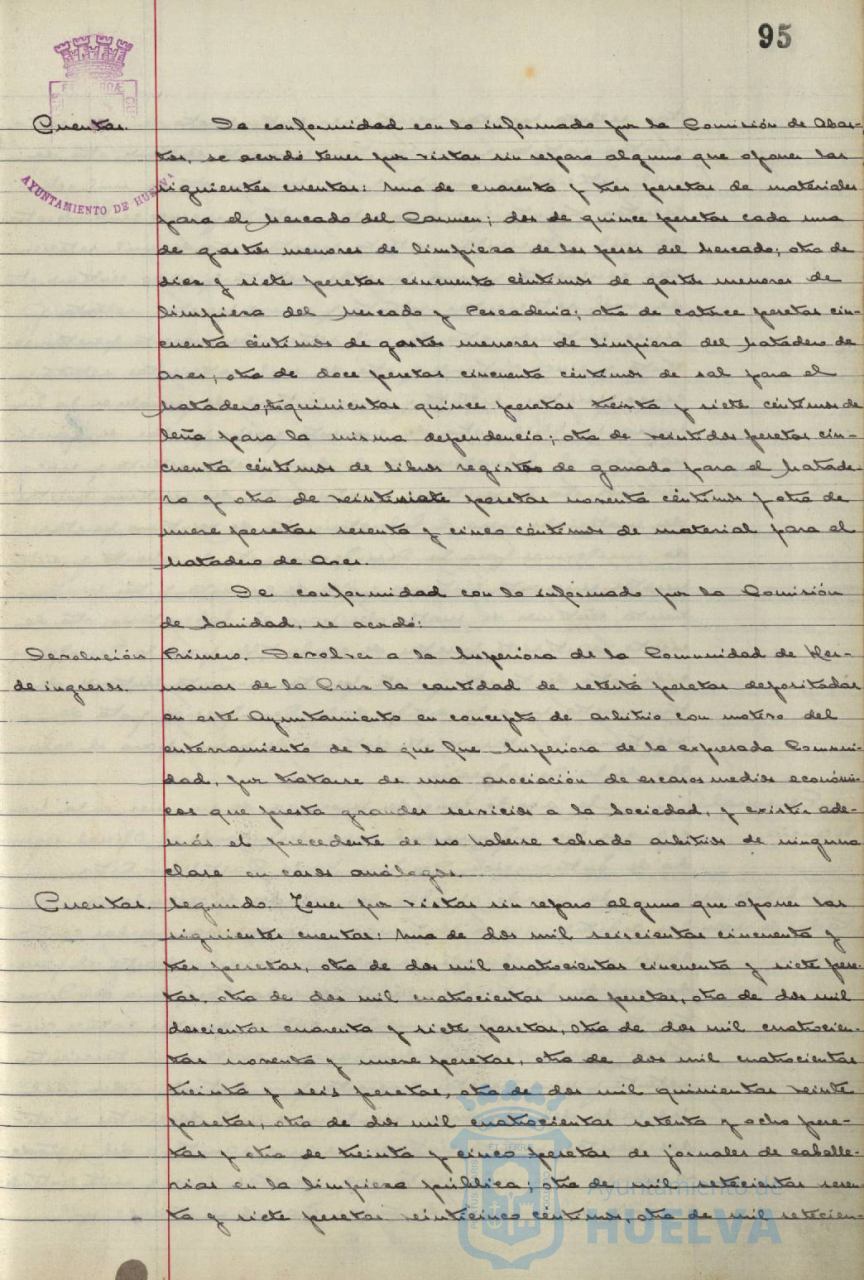 95
Cuentas. De conformidad con lo informado por la Comisión de Abas-
tos, se acordó tener por vistas sin reparo alguno que oponer las
siguientes cuentas: Una de cuarenta y tres pesetas de materiales
AYUNTAMIENTO DE HUELVA
para el Mercado del Carmen; dos de quince pesetas cada una
de gastos menores de limpieza de los pesos del Mercado; otra de
diez y siete pesetas cincuenta céntimos de gastos menores de
limpieza del Mercado y Pescadería; otra de catorce pesetas cin-
cuenta céntimos de gastos menores de limpieza del Matadero de
Aves; otra de doce pesetas cincuenta céntimos de sal para el
Matadero; quinientas quince pesetas treinta y siete céntimos de
leña para la misma dependencia; otra de veintidos pesetas cin-
cuenta céntimos de libros registro de ganado para el Matade-
ro y otra de veintisiete pesetas noventa céntimos y otra de
nueve pesetas sesenta y cinco céntimos de material para el
Matadero de Aves.
De conformidad con lo informado por la Comisión
de Sanidad, se acordó:
Devolución Primero. Devolver a la Superiora de la Comunidad de Her-
de ingresos. manas de la Cruz la cantidad de setenta pesetas depositadas
en este Ayuntamiento en concepto de arbitrio con motivo del
enterramiento de la que fue Superiora de la expresada Comuni-
dad, por tratarse de una asociación de escasos medios económi-
cos que presta grandes servicios a la Sociedad, y existir ade-
más el precedente de no haberse cobrado arbitrios de ninguna
clase en casos análogos.
Cuentas. Segundo. Tener por vistas sin reparo alguno que oponer las
siguientes cuentas: Una de dos mil seiscientas cincuenta y
tres pesetas, otra de dos mil cuatrocientas cincuenta y siete pese-
tas, otra de dos mil cuatrocientas una pesetas, otra de dos mil
doscientas cuarenta y siete pesetas, otra de dos mil cuatrocien-
tas noventa y nueve pesetas, otra de dos mil cuatrocientas
treinta y seis pesetas, otra de dos mil quinientas veinte
pesetas, otra de dos mil cuatrocientas setenta y ocho pese-
tas y otra de treinta y cinco pesetas de jornales de caballe-
rías en la limpieza pública; otra de mil setecientas sesen-
ta y siete pesetas veinticinco céntimos, otra de mil setecien-
Ayuntamiento de
HUELVA